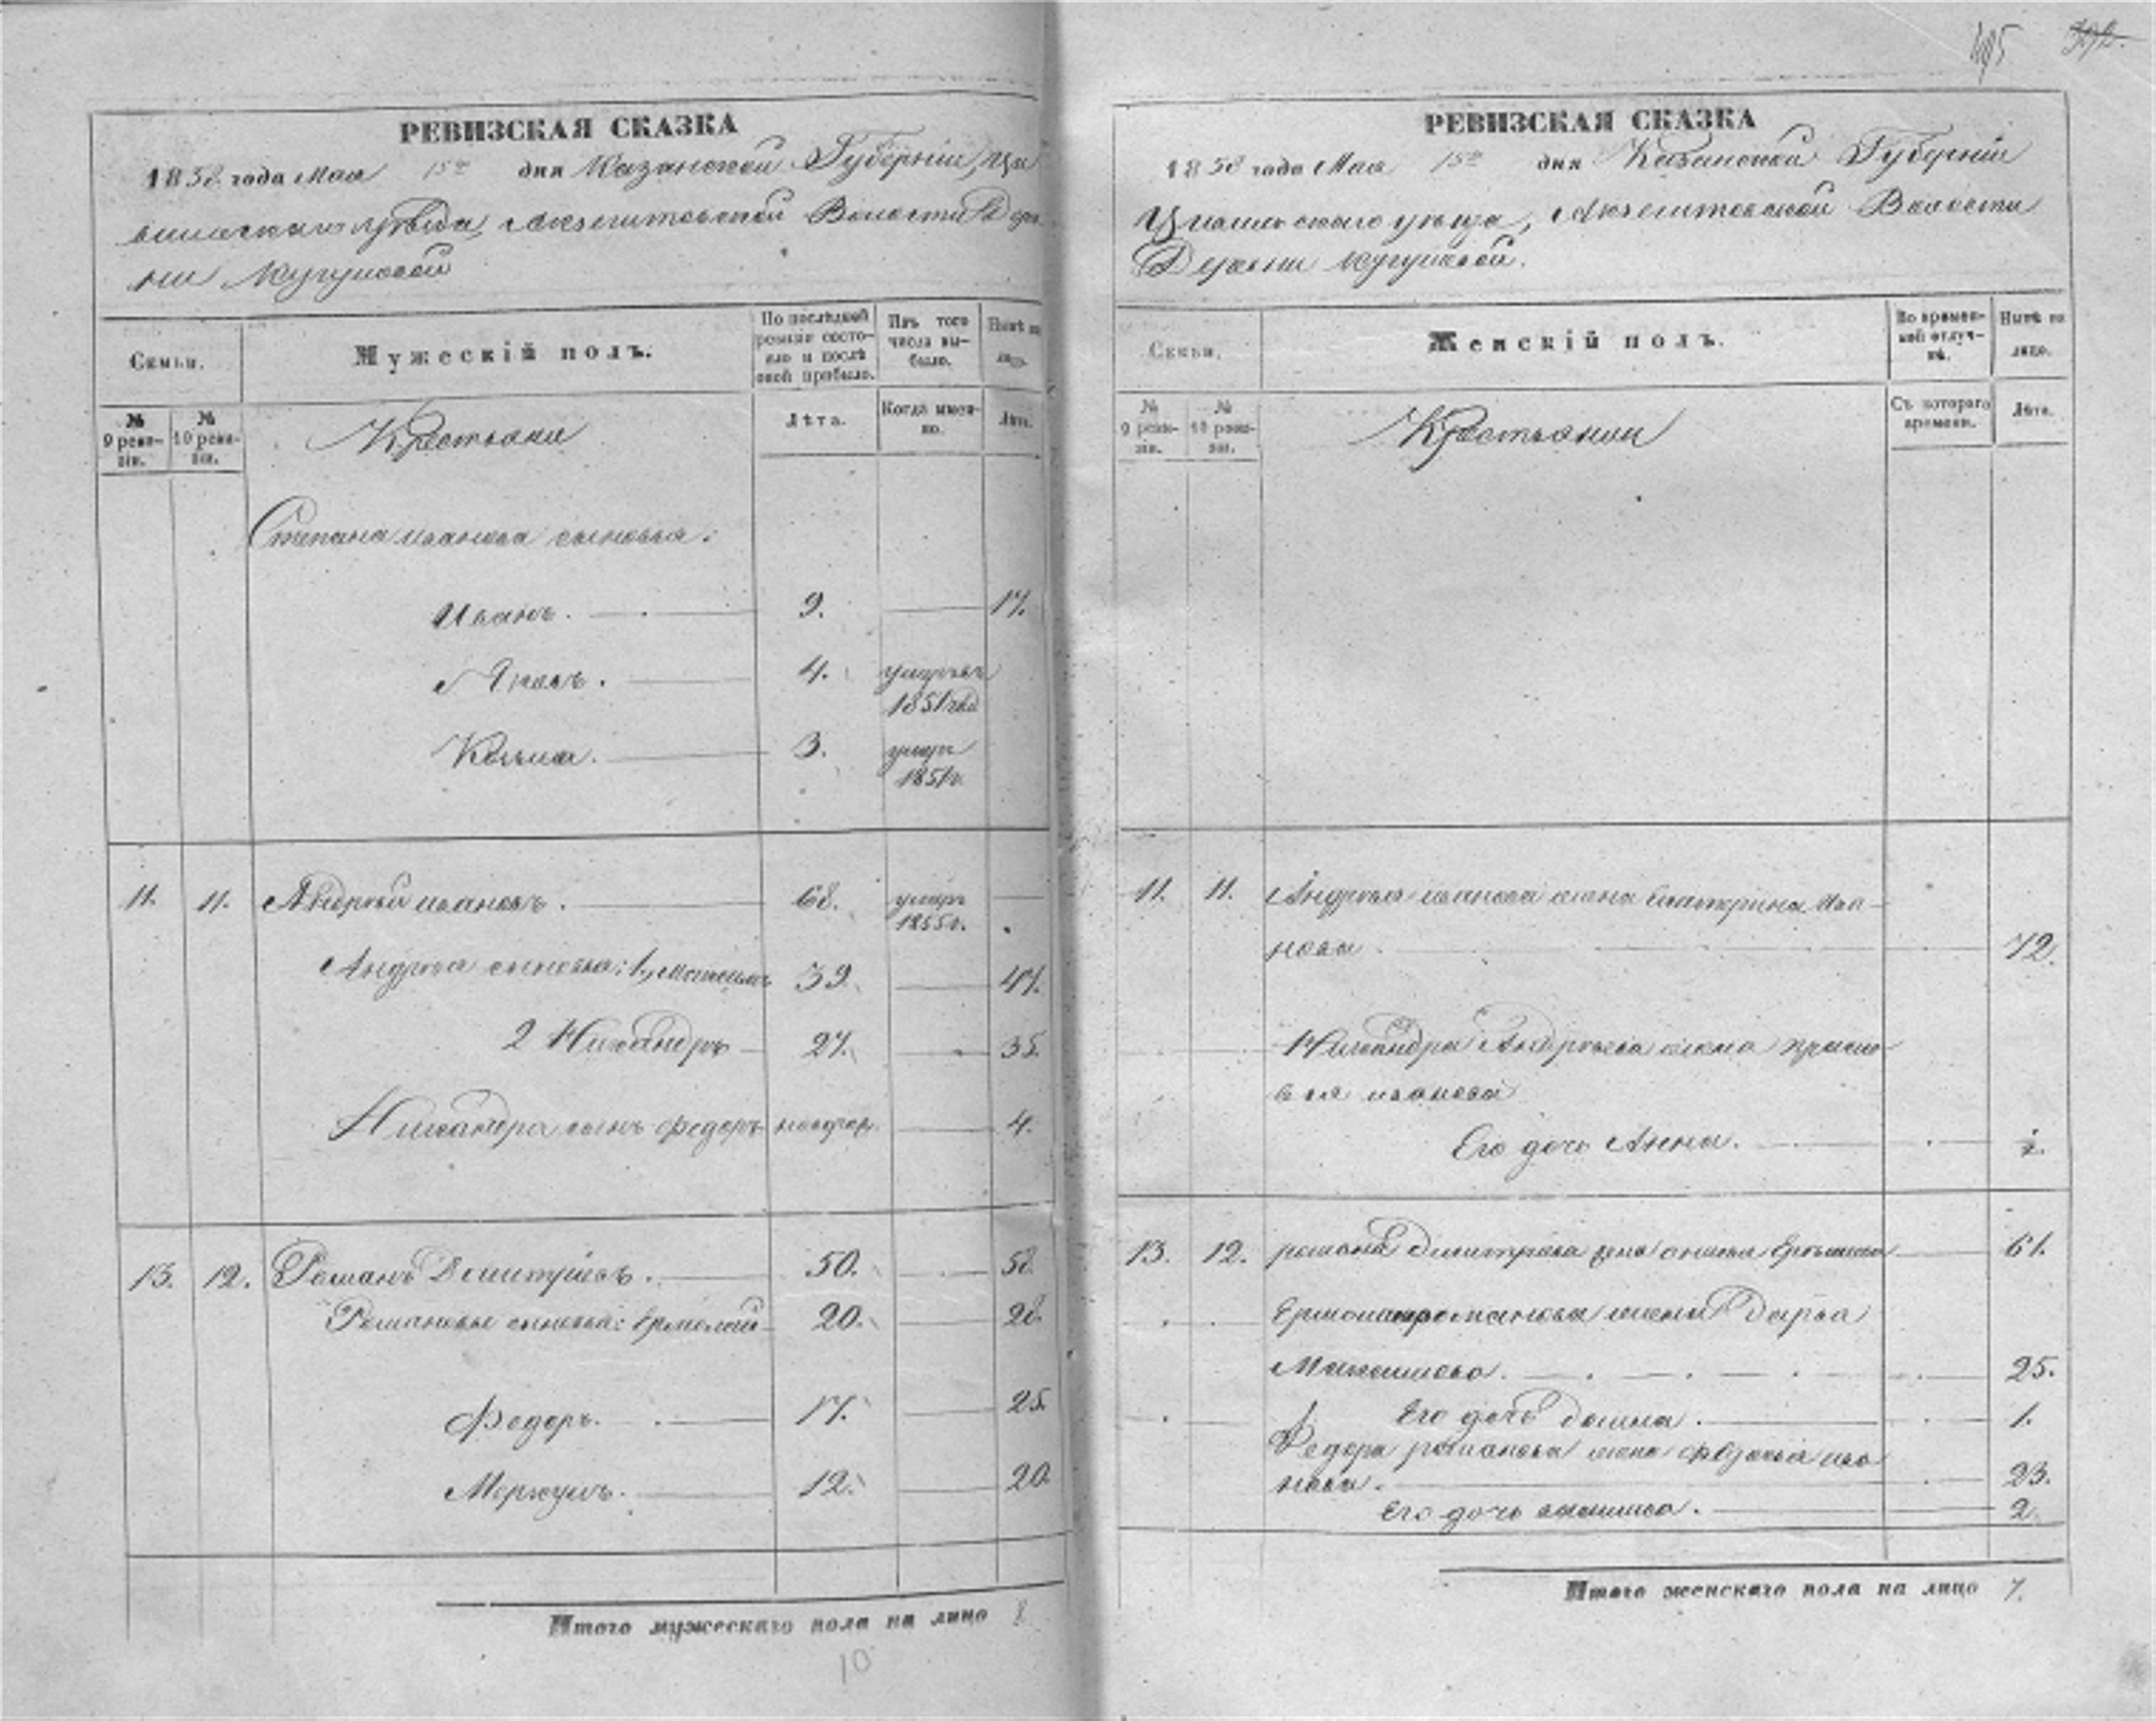 495 392.
РЕВИЗСКАЯ СКАЗКА
1858 года Мая 15го дня Казанской Губерніи, Ци
вильскаго уѣзда, Акзегитовской Волости Дерев
ни Кугушевой
Семьи.
Мужескій полъ.
По послѣдней ревизіи состо-
яло и послѣ
оной прибыло.
Изъ того
числа вы-
было.
Нынѣ на
лицо.
№
9 реви-
зіи.
№
10 реви-
зіи.
Крестьяне
Лѣта.
Когда имен-
но.
Лѣта.
Степана Иванова сыновья:
Иванъ. 9. 17.
Яковъ. 4. умеръ
1851 год
Козьма. 3. умеръ
1851г.
11. 11. Андрей Ивановъ. 68. умеръ
1855г.
Андрея сыновья: 1, 39. 47.
2 Никандръ 27. 35.
Никандра сынъ Федоръ новорож. 4.
13. 12. Романъ Дмитріевъ. 50. 58.
Романовы сыновья: Ермолай 20. 28.
Федоръ. 17. 25.
Меркулъ. 12. 20.
Итого мужескаго пола на лицо 8.
10
РЕВИЗСКАЯ СКАЗКА
1858 года Мая 15го дня Казанской Губерніи
Цивильскаго уѣзда, Акзегитовской Волости
Деревни Кугушевой.
Семьи.
Женскій полъ.
Во времен-
ной отлуч-
кѣ.
Нынѣ на
лицо.
№
9 реви-
зіи.
№
10 реви-
зіи.
Крестьянки
Съ котораго
времени.
Лѣта.
11. 11. Андрея Иванова жена Екатерина Ива-
нова. 72.
Никандра Андреева жена Праско-
вья Иванова
Его дочь Анна.
13. 12. Романа Дмитріева жена 61.
Ермолая Романова жена Дарья
Максимова. 25.
Его дочь Домна. 1.
Федора Романова жена Ива
нова. 23.
Его дочь 2.
Итого женскаго пола на лицо 7.